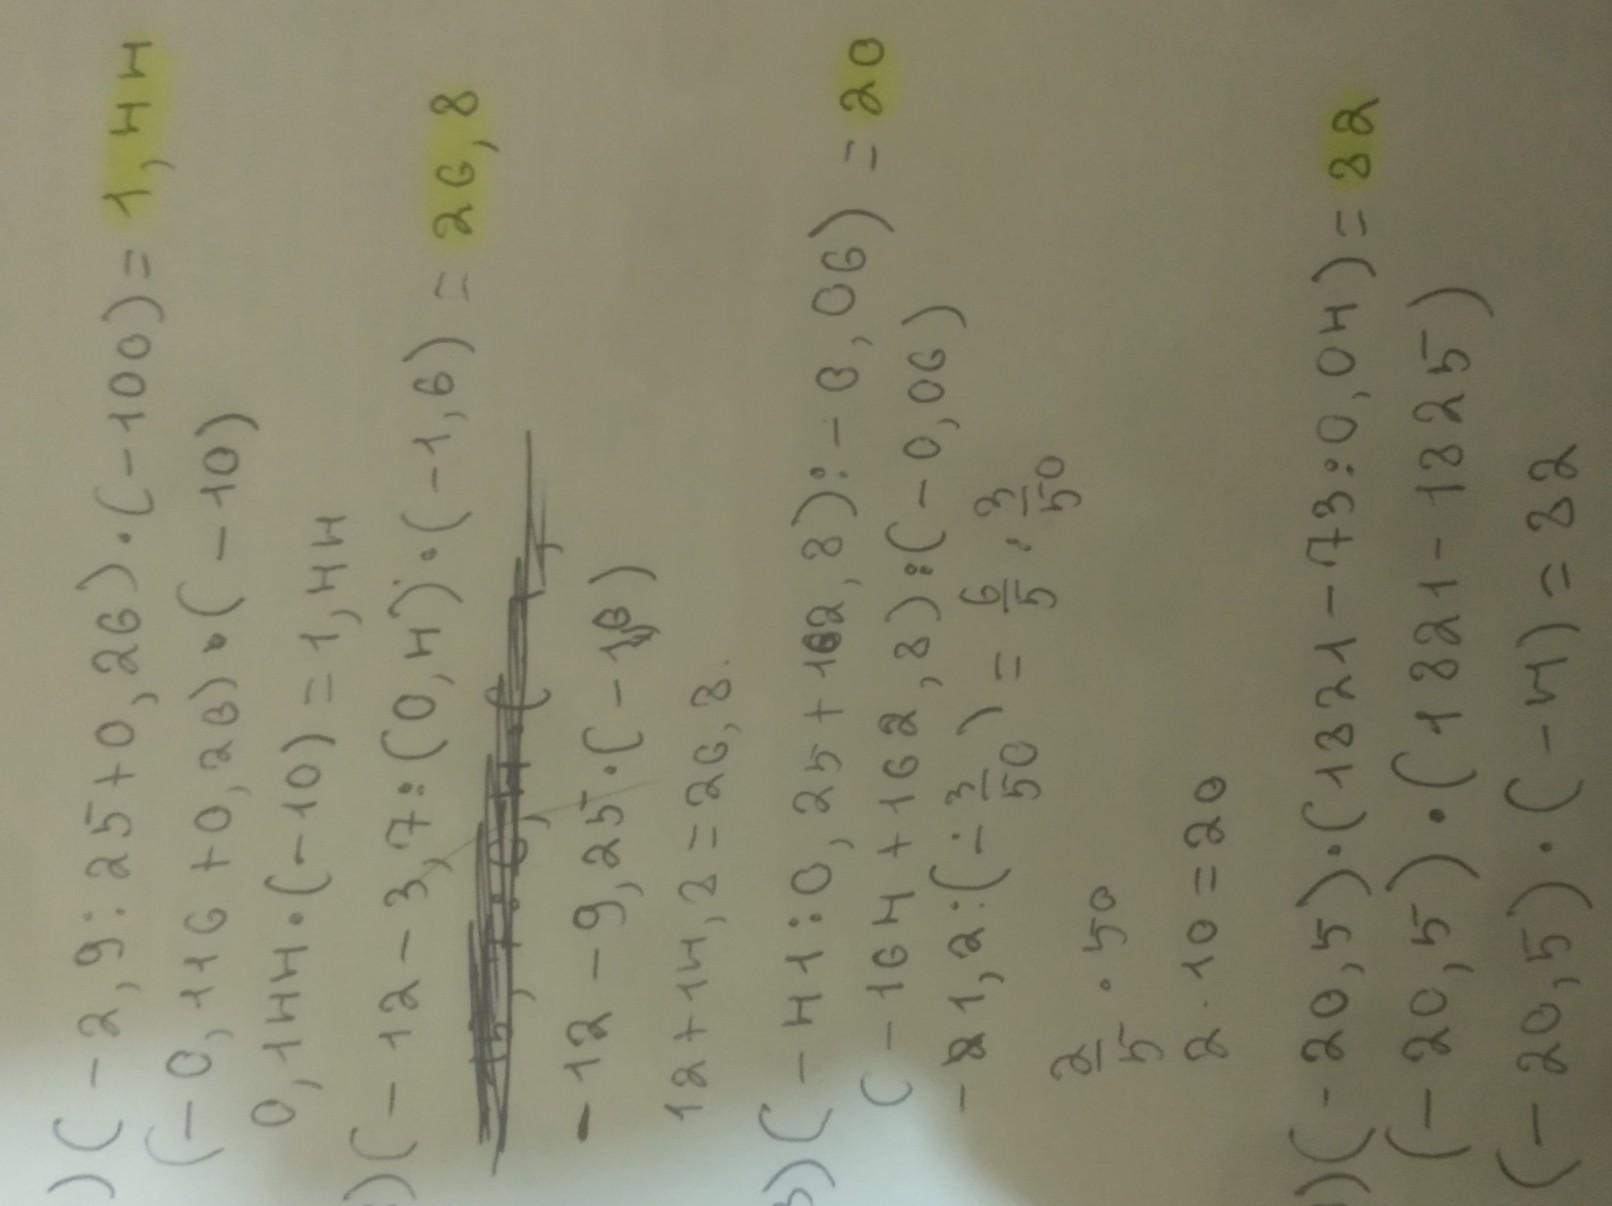 )(-2,9:25+0,26)·(-100)=1,44
(-0,116+0,26)·(-10)
0,144·(-10)=1,44
)(-12-3,7:(0,4)·(-1,6)=26,8
-12-9,25·(-1,6)
12+14,8=26,8.
в)(-41:0,25+162,8):-0,06)=20
(-164+162,8):(-0,06)
-1,2:(-3/50)=6/5:3/50
2/5·50
2·10=20
)(-20,5)·(1821-73:0,04)=82
(-20,5)·(1821-1825)
(-20,5)·(-4)=82